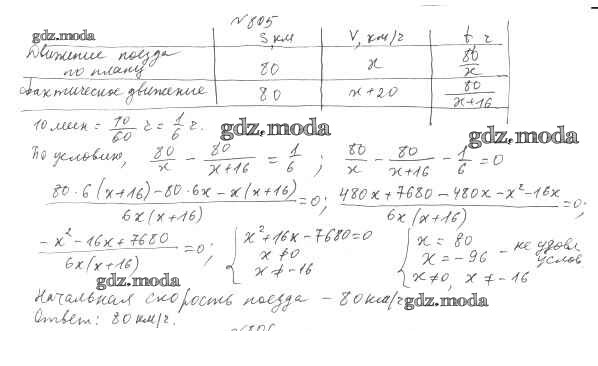 №805
gdz.moda
S, км V, км/ч t ч
Движение поезда по плану 80 x 80/x
Фактическое движение 80 x+20 80/(x+16)
10 мин = 10/60 ч = 1/6 ч.
gdz.moda gdz.moda
По условию, 80/x - 80/(x+16) = 1/6 ; 80/x - 80/(x+16) - 1/6 = 0
(80·6(x+16)-80·6x-x(x+16))/(6x(x+16)) = 0; (480x+7680-480x-x²-16x)/(6x(x+16)) = 0;
(-x²-16x+7680)/(6x(x+16)) = 0; { x²+16x-7680=0 x≠0 x≠-16 { x=80 x=-96 - не удовл услов x≠0, x≠-16
gdz.moda
Начальная скорость поезда - 80 км/ч
gdz.moda
Ответ: 80 км/ч.